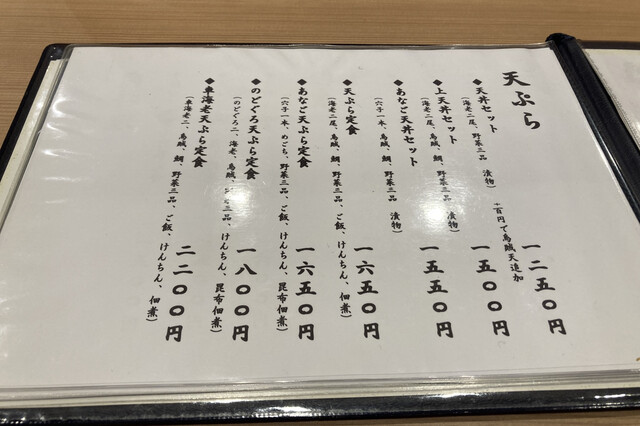 天ぷら
◆天丼セット
(海老二尾、野菜三品 漬物)
+百円で烏賊天追加
一二五〇円
◆上天丼セット
(海老二尾、烏賊、鯛、野菜三品 漬物)
一五〇〇円
◆あなご天丼セット
(穴子一本、烏賊、鯛、野菜三品 漬物)
一五五〇円
◆天ぷら定食
(海老二尾、烏賊、鯛、野菜三品、ご飯、けんちん、佃煮)
一六五〇円
◆あなご天ぷら定食
(穴子一本、めごち、野菜三品、ご飯、けんちん、昆布佃煮)
一六五〇円
◆のどぐろ天ぷら定食
(のどぐろ二、海老、烏賊、野菜三品、ご飯、けんちん、昆布佃煮)
一八〇〇円
◆車海老天ぷら定食
(車海老二、烏賊、鯛、野菜三品、ご飯、けんちん、佃煮)
二二〇〇円